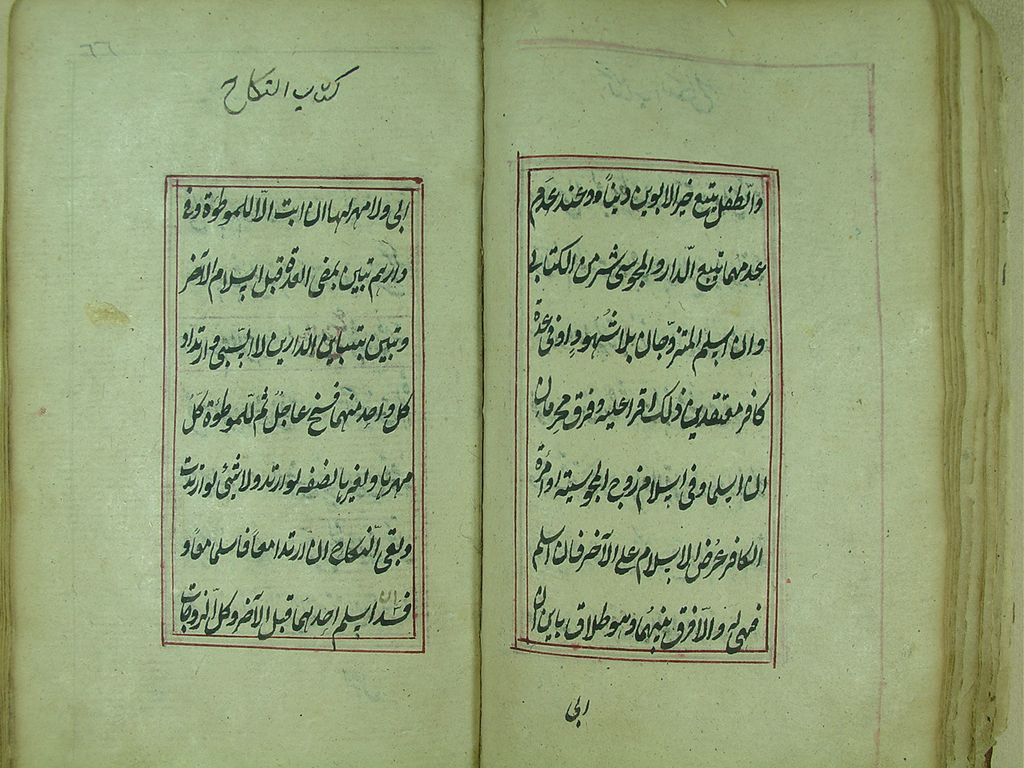 والطفل يتبع خير الابوين دينا وعند عدم
عدمهما تبيع الدار والمجوسى شر من الكتابى
وان اسلم المتزوجان بلا شهود او فى عدة
كافر معتقدين ذلك اقرا عليه وفرق محرمان
ان اسلما وفى اسلام زوج المجوسية او امرة
الكافر عرض الاسلام على الآخر فان اسلم
فهى له والا فرق بينهما وهو طلاق باين ان
ابى
٦٦
كتاب النكاح
ابى ولا مهر لها ان ابت الا للموطوة وفى
دارهم تبين بمضى العدة قبل اسلام الآخر
وتبين بتباين الدارين لا السبى وارتداد
كل واحد منهما فسخ عاجل ثم للموطوة كل
مهرها ولغيرها نصفه لو ارتد ولا شئ لو ارتدت
وبقى النكاح ان ارتدا معا فاسلما معا و
فسد ان اسلم احدهما قبل الآخر وكل الزوجات